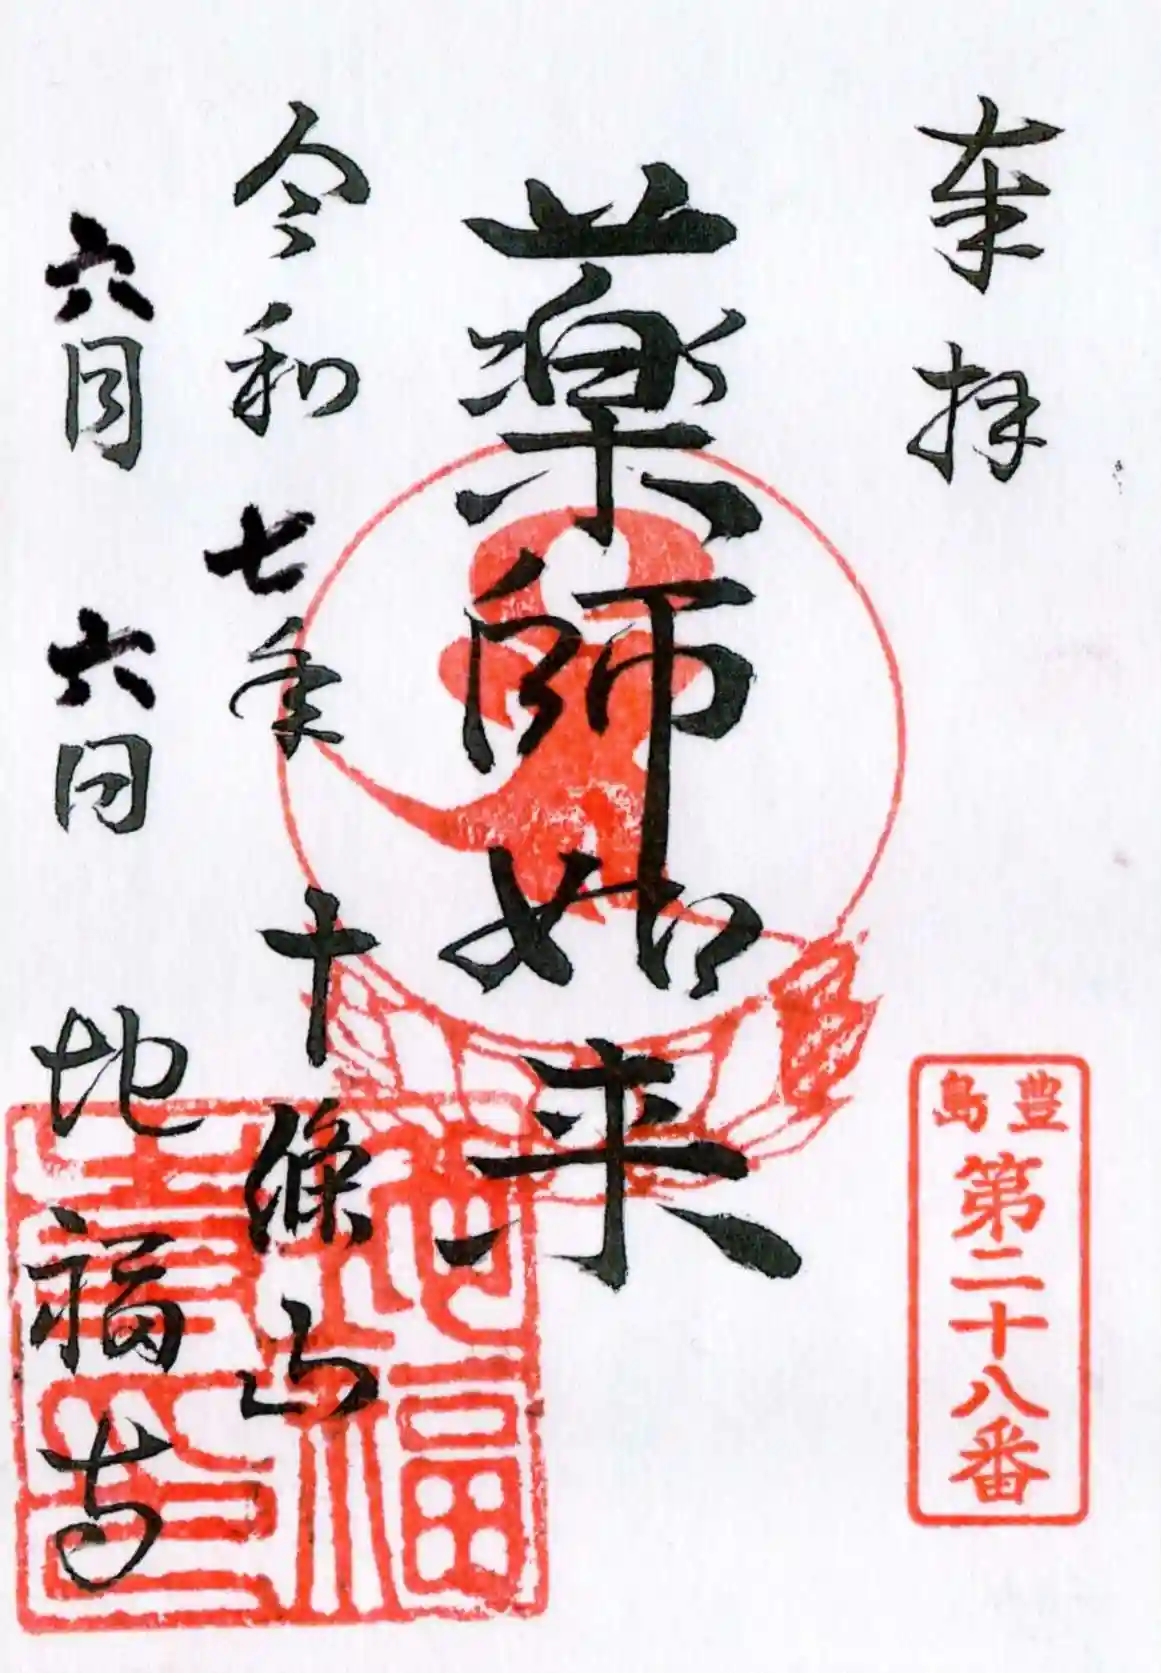 奉拝
豊島
第二十八番
薬師如来
令和七年
十條山
六月六日
地福寺
地福寺印